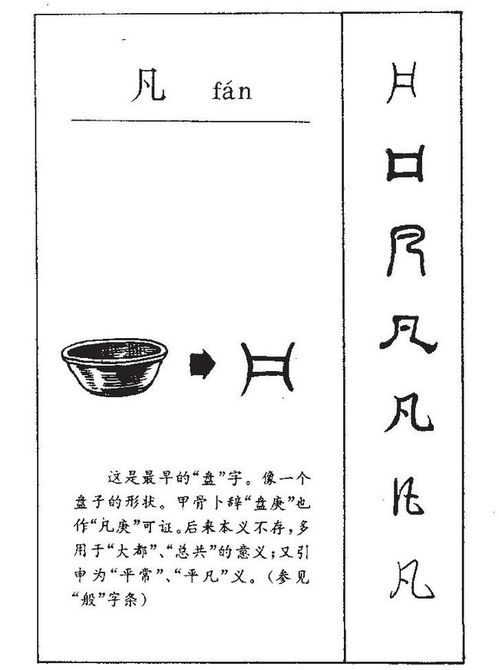 凡 fán
这是最早的“盘”字。像一个
盘子的形状。甲骨卜辞“盘庚”也
作“凡庚”可证。后来本义不存,多
用于“大都”、“总共”的意义;又引
申为“平常”、“平凡”义。(参见
“般”字条)
凡
凡
凡
凡
凡
凡
凡